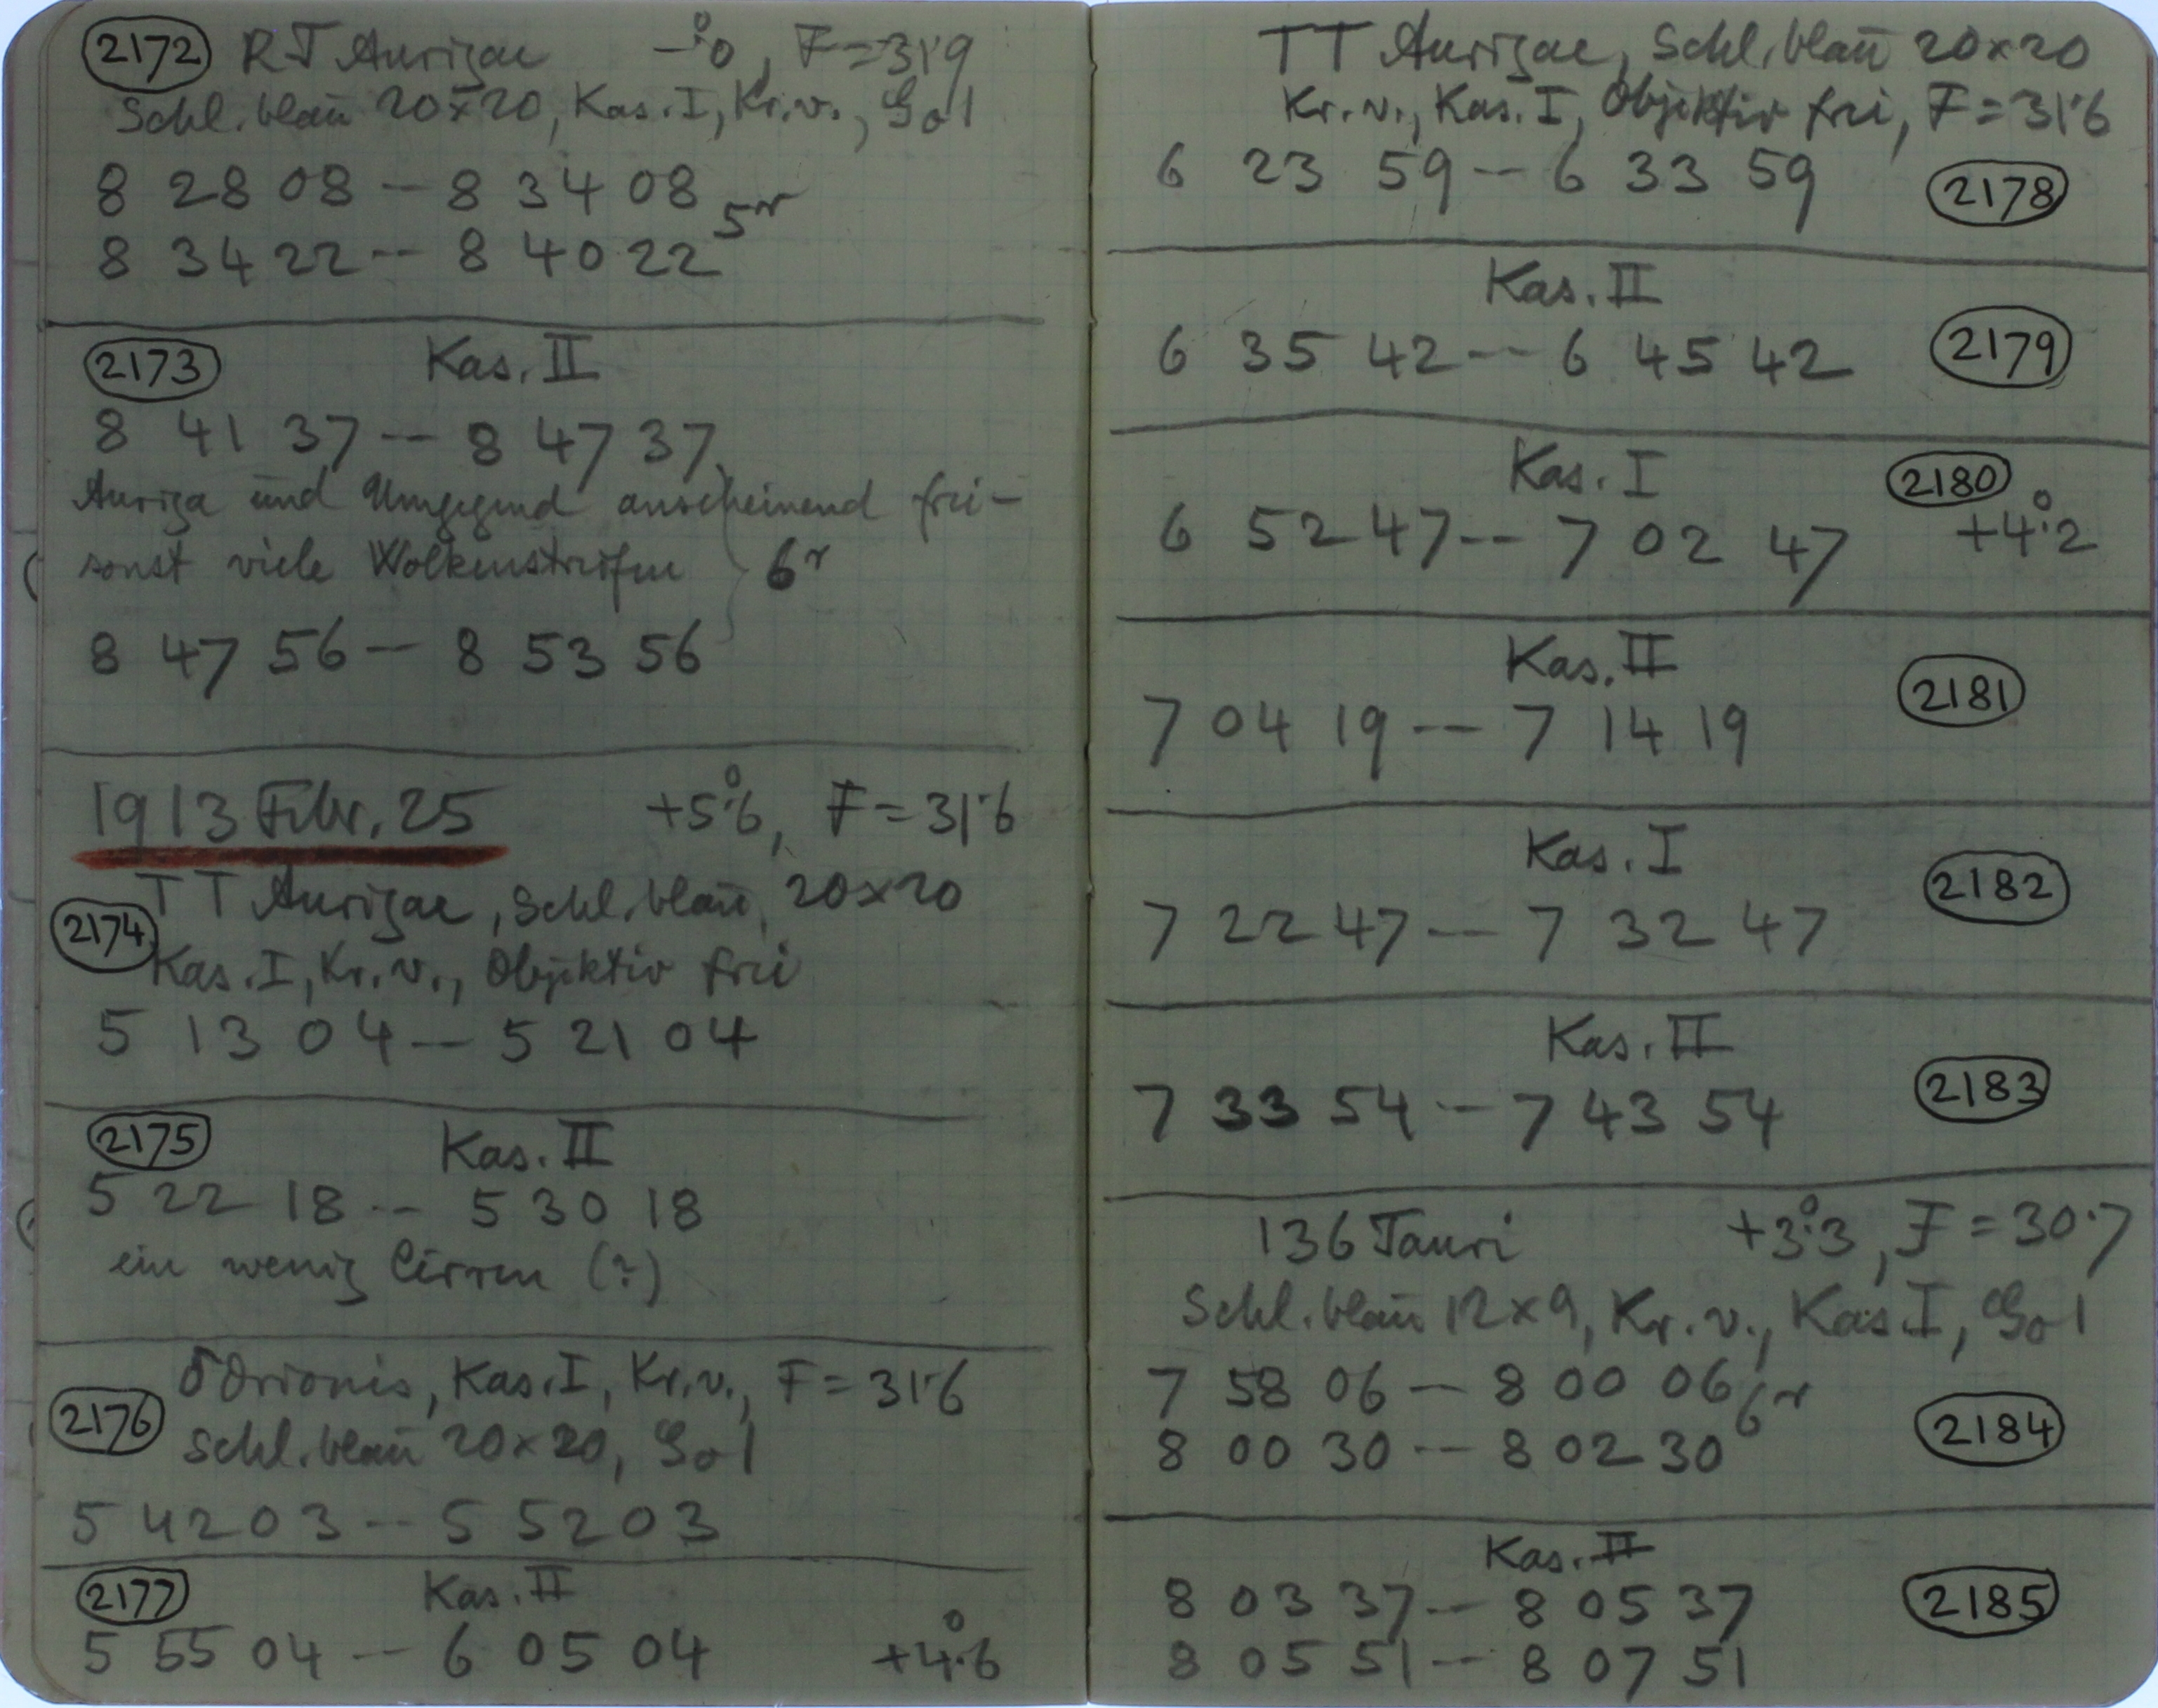 2172 RT Aurigae F = 31.9
Schl. blau 20 × 20, Kas. I, Kr. v., 
8 28 08 – 8 34 08
5r
8 34 22 -- 8 40 22
2173 Kas. II
8 41 37 -- 8 47 37
Auriga und Umgegend anscheinend frei –
sonst viele Wolkenstreifen 6r
8 47 56 -- 8 53 56
1913 Febr. 25 +5°.6, F = 31.6
TT Aurigae, Schl. blau, 20×20
2174
Kas. I, Kr. v., Objektiv frei
5 13 04 -- 5 21 04
2175 Kas. II
5 22 18 -- 5 30 18
ein wenig Cirren (?)
δ Orionis, Kas. I, Kr. v., F = 31.6
2176
Schl. blau 20×20,
5 42 03 -- 5 52 03
2177 Kas. II
5 55 04 -- 6 05 04 +4°.6
TT Aurigae, Schl. blau 20×20
Kr. v., Kas. I, Objektiv frei, F = 31.6
6 23 59 -- 6 33 59 2178
Kas. II
6 35 42 -- 6 45 42 2179
Kas. I 2180
6 52 47 -- 7 02 47 +4°.2
Kas. II
2181
7 04 19 -- 7 14 19
Kas. I
2182
7 22 47 -- 7 32 47
Kas. II
7 33 54 -- 7 43 54 2183
136 Tauri +3°.3, F = 30.7
Schl. blau 12×9, Kr. v., Kas. I,
7 58 06 -- 8 00 06
6r
8 00 30 -- 8 02 30 2184
Kas. II
8 03 37 -- 8 05 37 2185
8 05 51 -- 8 07 51